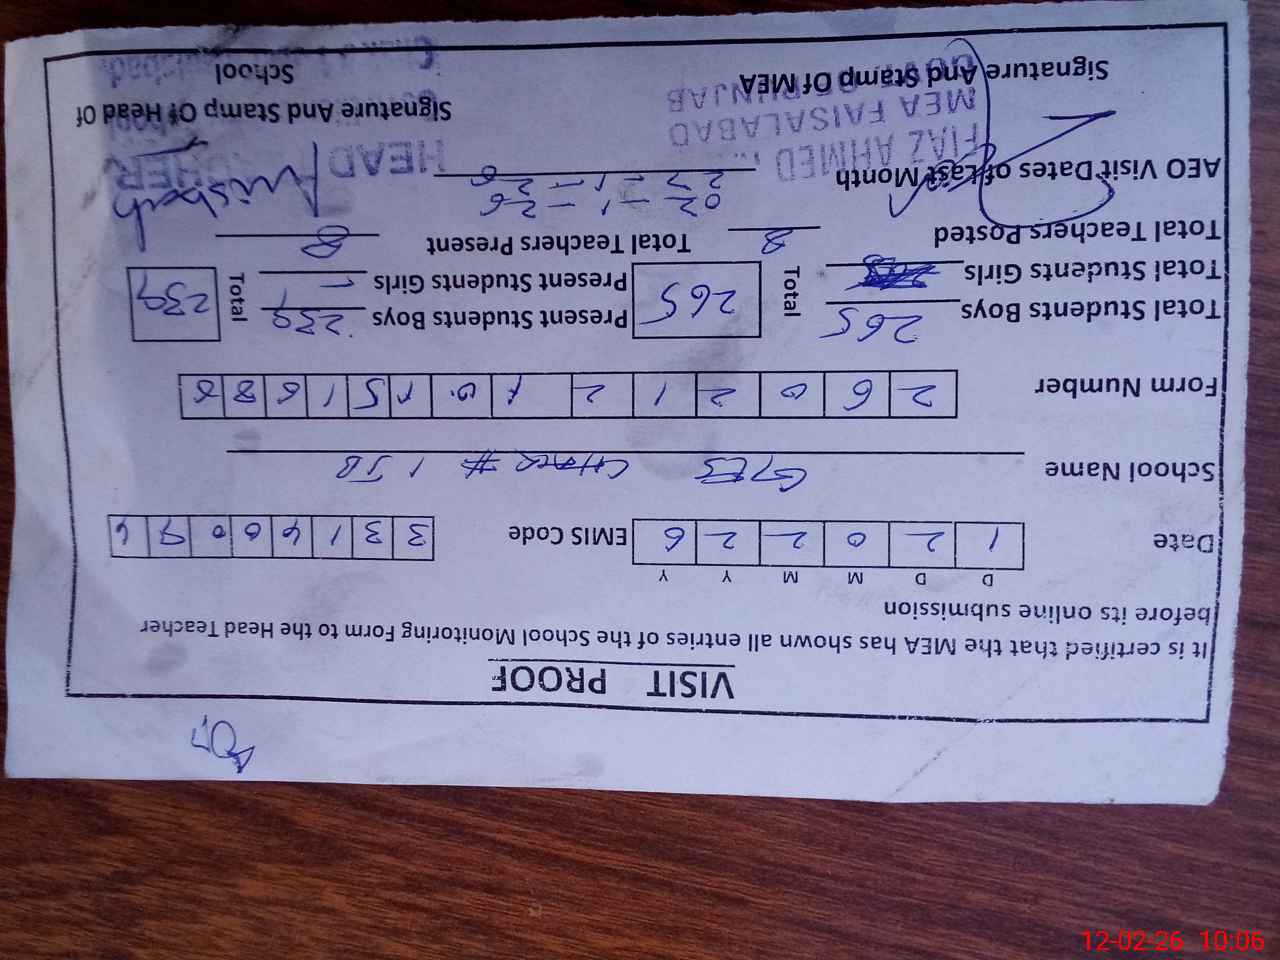 VISIT PROOF
It is certified that the MEA has shown all entries of the School Monitoring Form to the Head Teacher
before its online submission
D D M M Y Y
Date 1 2 0 2 2 6 EMIS Code 3 3 1
School Name GES CHAK # 1 JB
Form Number 2 6 0 2 1 2 1 0 1 5 1 6 8 8
Total Students Boys 265 Total 265 Present Students Boys 239 Total 239
Total Students Girls Present Students Girls –
Total Teachers Posted 8 Total Teachers Present 8
02-1-26
AEO Visit Dates of Last Month 27-1-26
FIAZ AHMED
MEA FAISALABAD
GOVT OF PUNJAB
HEAD TEACHER
Signature And Stamp Of MEA Signature And Stamp Of Head Of
School
12-02-26 10:06